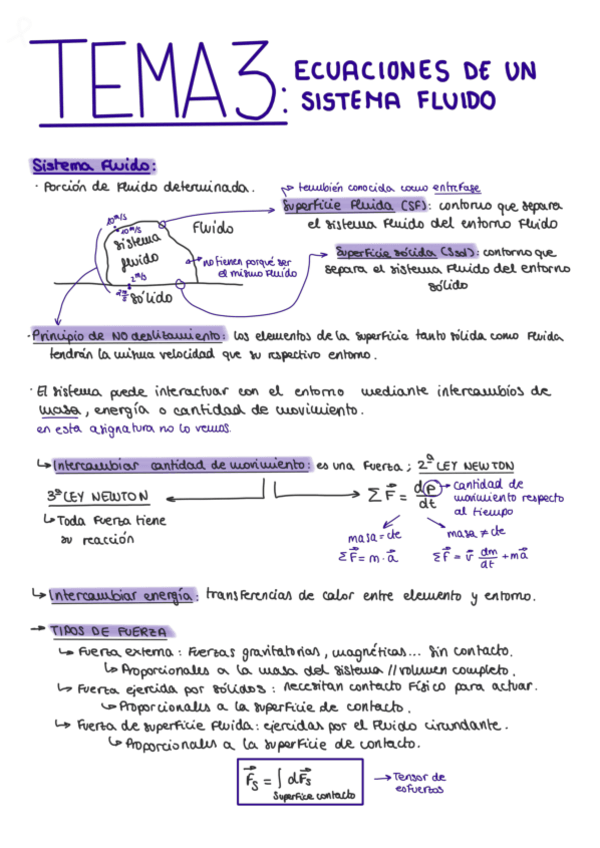 TEMA 3: ECUACIONES DE UN
SISTEMA FLUIDO
Sistema Fluido:
· Porción de Fluido determinada.
también conocida como entrefase
Superficie Fluida (SF): contorno que separa
el sistema Fluido del entorno Fluido
10 m/s
10 m/s
sistema
fluido
Fluido
no tienen porqué ser
el mismo Fluido
2 m/s
sólido
Superficie sólida (Ssol): contorno que
separa el sistema Fluido del entorno
sólido
· Principio de NO deslizamiento: los elementos de la superficie tanto sólida como Fluida
tendrán la misma velocidad que su respectivo entorno.
· El sistema puede interactuar con el entorno mediante intercambios de
masa, energía o cantidad de movimiento.
en esta asignatura no lo vemos.
↳ Intercambiar cantidad de movimiento: es una Fuerza; 2ª LEY NEWTON
3ª LEY NEWTON
↳ Toda Fuerza tiene
su reacción
ΣF⃗ = dp⃗/dt
cantidad de
movimiento respecto
al tiempo
masa = cte
ΣF⃗ = m · a⃗
masa ≠ cte
ΣF⃗ = v⃗ dm/dt + ma⃗
↳ Intercambiar energía: transferencias de calor entre elemento y entorno.
→ TIPOS DE FUERZA
↳ Fuerza externa: Fuerzas gravitatorias, magnéticas... sin contacto.
↳ Proporcionales a la masa del sistema // volumen completo.
↳ Fuerza ejercida por sólidos: necesitan contacto Físico para actuar.
↳ Proporcionales a la superficie de contacto.
↳ Fuerza de superficie Fluida: ejercidas por el Fluido circundante.
↳ Proporcionales a la superficie de contacto.
F⃗s = ∫ dF⃗s
Superficie contacto
→ Tensor de
esfuerzos